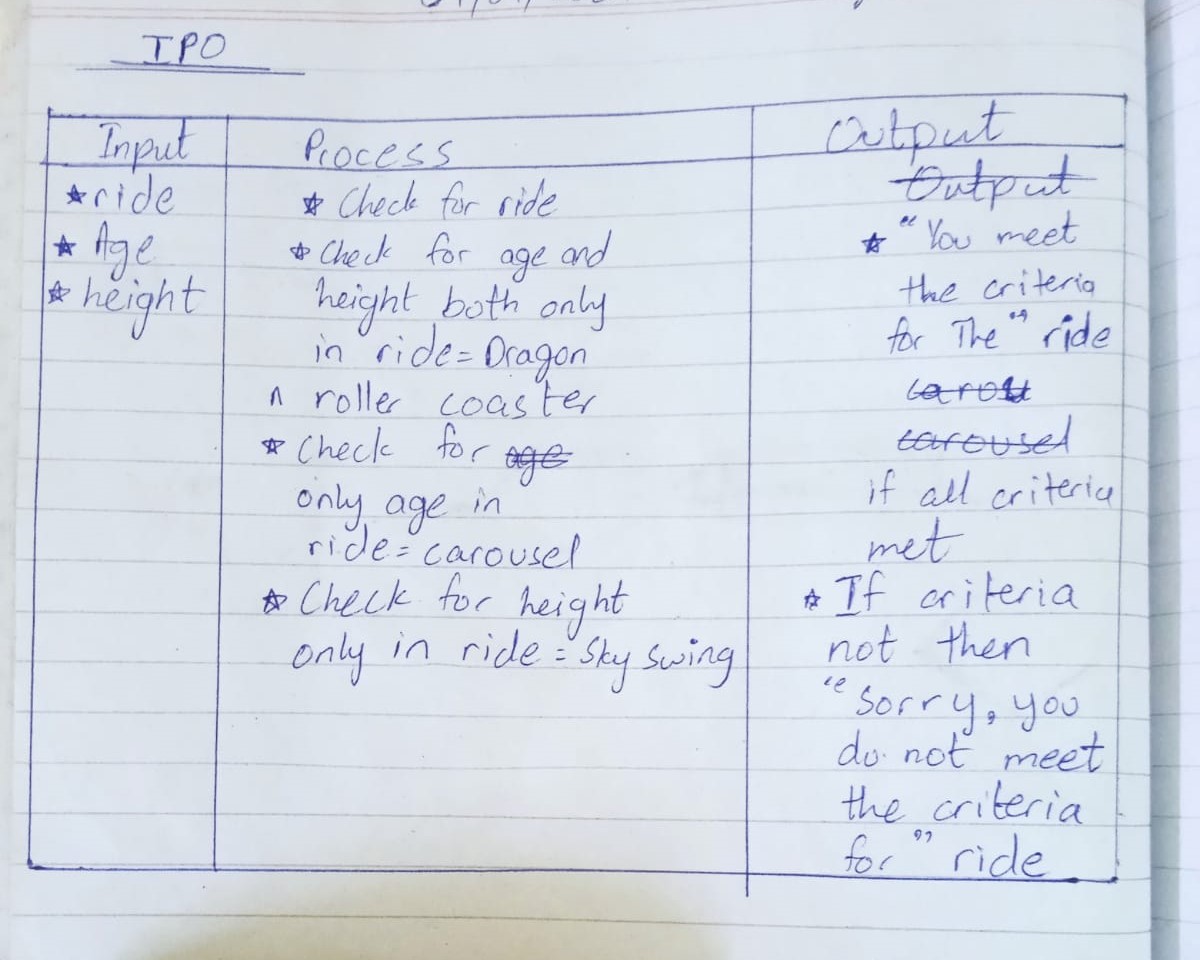 IPO
Input
★ ride
★ Age
★ height
Process
★ Check for ride
★ Check for age and
height both only
in ride = Dragon
^ roller coaster
★ Check for age
only age in
ride = carousel
★ Check for height
only in ride = Sky swing
Output
Output
★ "You meet
the criteria
for The" ride
carou
carousel
if all criteria
met
★ If criteria
not then
"Sorry, you
do not meet
the criteria
for" ride